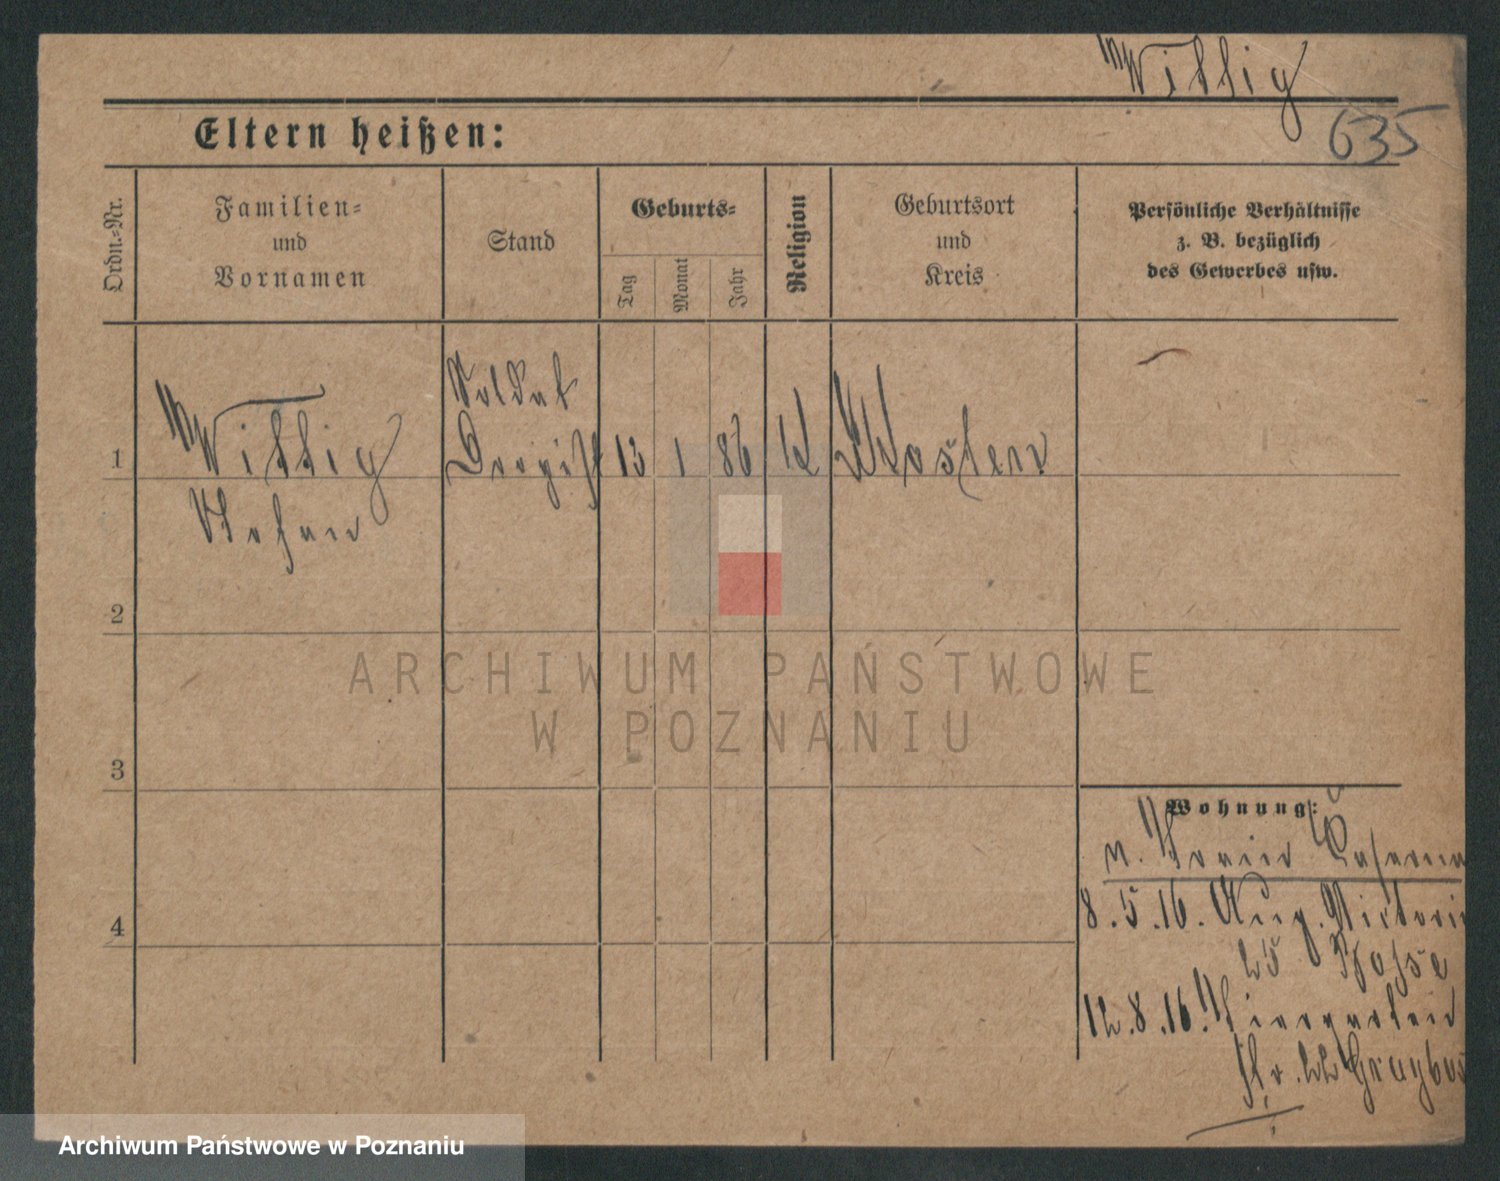 Wittig
635
Eltern heißen:
Ordn.-Nr.
Familien-
und
Vornamen
Stand
Geburts-
Tag
Monat
Jahr
Religion
Geburtsort
und
Kreis
Persönliche Verhältnisse
z. B. bezüglich
des Gewerbes usw.
Soldat
1 Wittig Drogist 13 1 86 k Kosten
2
3
4
Wohnung:
8.5.16. Aug. Victoria
25
12.8.16. Tiergarten
str. 22
ARCHIWUM PAŃSTWOWE
W POZNANIU
Archiwum Państwowe w Poznaniu